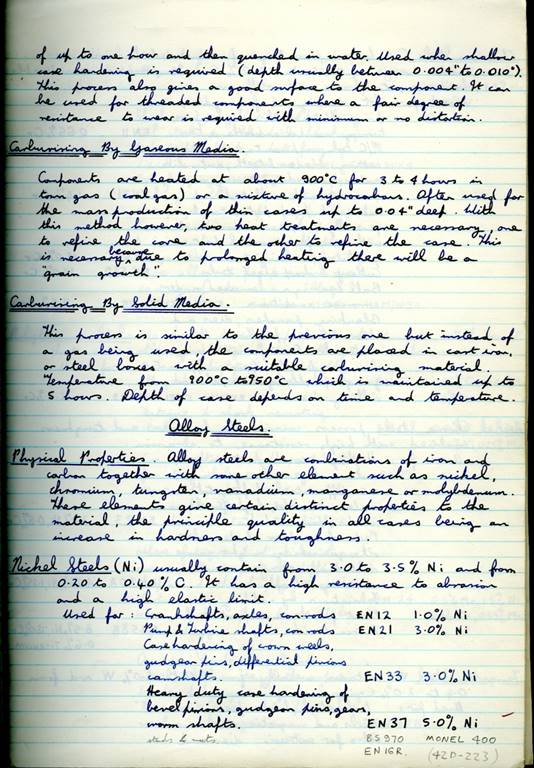 of up to one hour and then quenched in water. Used when shallow
case hardening is required (depth usually between 0.004" to 0.010").
This process also gives a good surface to the component. It can
be used for threaded components where a fair degree of
resistance to wear is required with minimum or no distortion.
Carburising By Gaseous Media.
Components are heated at about 900°C for 3 to 4 hours in
town gas (coal gas) or a mixture of hydrocarbons. Often used for
the mass production of thin cases up to 0.04" deep. With
this method however, two heat treatments are necessary, one
to refine the core and the other to refine the case. This
is necessary because due to prolonged heating there will be a
"grain growth".
Carburising By Solid Media.
This process is similar to the previous one but instead of
a gas being used, the components are placed in cast iron,
or steel boxes with a suitable carburising material.
Temperature from 900°C to 950°C which is maintained up to
5 hours. Depth of case depends on time and temperature.
Alloy Steels.
Physical Properties. Alloy steels are combinations of iron and
carbon together with some other element such as nickel,
chromium, tungsten, vanadium, manganese or molybdenum.
These elements give certain distinct properties to the
material, the principle quality in all cases being an
increase in hardness and toughness.
Nickel Steels (Ni) usually contain from 3.0 to 3.5% Ni and from
0.20 to 0.40% C. It has a high resistance to abrasion
and a high elastic limit.
Used for: Crankshafts, axles, conrods EN12 1.0% Ni
Pump & Turbine shafts, conrods EN21 3.0% Ni
Case hardening of crown weels,
gudgeon pins, differential pinions
camshafts. EN33 3.0% Ni
Heavy duty case hardening of
bevel pinions, gudgeon pins, gears,
worm shafts. EN37 5.0% Ni
studs & nuts. BS970 MONEL 400
EN16R. (42D-223)